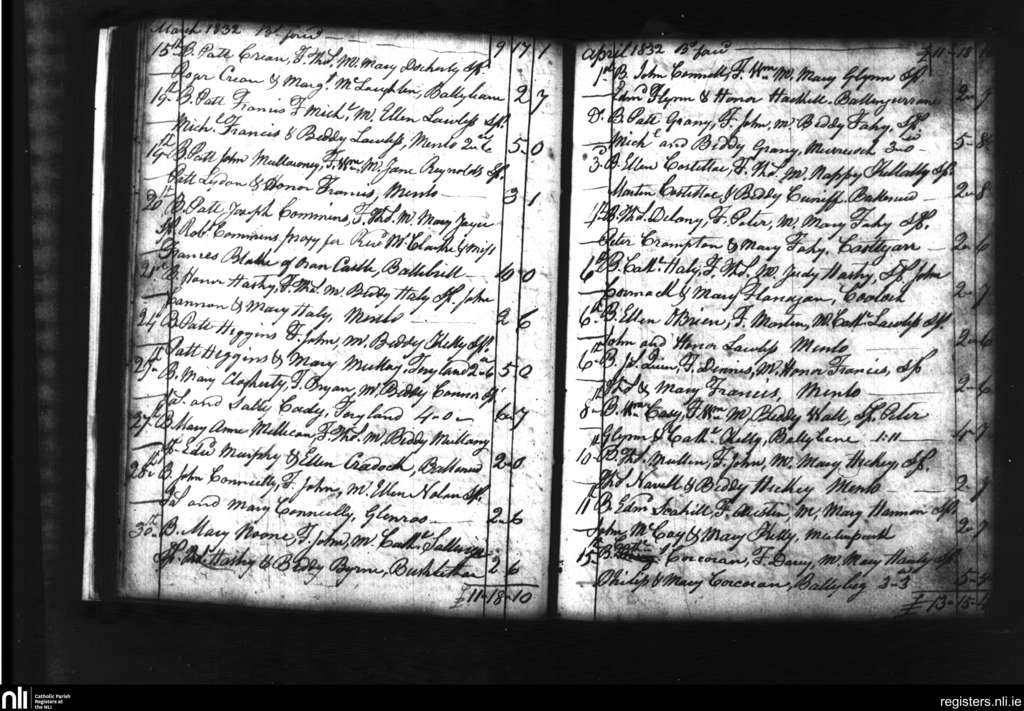 March 1832 Bt. forwd 9 17 1
15th B. Patt Crean, F. Thos. M. Mary Docherty Sp.
Roger Crean & Margt. McLaughlin, Ballybane 2 7
19th B. Patt Francis F. Michl. M. Ellen Lawless Sp.
Michl. Francis & Biddy Lawless, Menlo 5-0
19th B. Patt John Mullowney, F. Wm. M. Jane Reynolds Sp.
Patt Lydon & Honor Francis, Menlo 3 1
20th B. Patt Joseph Commins, F. Thos. M. Mary Joyce
Sp. Robt. Commins proxy for Revd. Mr. Clarke & Miss
Frances Blake of Oran Castle,
21st B. Honor Hashy, F. Thos. M. Biddy Haly Sp. John
Cannon & Mary Haly, Menlo 2 6
24th B. Patt Higgins F. John, M. Biddy Kelly Sp.
Patt Higgins & Mary Murray, Toryland 5 0
B. Mary Clogherty, F. Bryan, M. Biddy Connor Sp.
Jas. and Sally Cady, Toryland 4-0 6-7
27th B. Mary Anne Millican F. Thos. M. Biddy Mullany
Sp. Edwd. Murphy & Ellen Cradock, 2-0
28th B. John Conneelly, F. John, M. Ellen Nolan Sp.
Jas. and Mary Conneelly, Glenros 2-6
30th B. Mary Noone, F. John, M. Cathe. Sullivan
Sp. Hashy & Biddy Byrne, 2 6
£11-18-10
April 1832 Bt. forwd £11-18-10
1st B. John Connell, F. Wm. M. Mary Glynn Sp.
Edmd. Glynn & Honor Haskell 2-7
B. Patt Grany, F. John, M. Biddy Fahy, Sp.
Michl. and Biddy Grany, 3-0 5-8
3rd B. Ellen Costelloe, F. Thos. M. Nappy Skellally Sp.
Martin Costelloe & Biddy Cuniff, 2-8
4th B. Thos. Delany, F. Peter, M. Mary Fahy Sp.
Peter Crampton & Mary Fahy, Castlegar 2-6
6th B. Cathe. Haly, F. Thos. M. Judy Hashy, Sp. John
Cormack & Mary Flanagan, Coolough 2-7
6th B. Ellen OBrien, F. Martin, M. Cathe. Lawless Sp.
John and Honor Lawless Menlo 2-6
6th B. Js. Quin, F. Dennis, M. Honor Francis, Sp.
Thos. & Mary Francis, Menlo 2-6
8th B. Wm. Casy, F. Wm. M. Biddy Wall, Sp. Peter
Glynn & Cathe. Kelly, Ballybane 1-11
10th B. Thos. Mullin, F. John, M. Mary Hickey, Sp.
Thos. Navell & Biddy Hickey Menlo 2-7
11 B. Edmd. Scahill F. Austin, M. Mary Hannon Sp.
John McCay & Mary Kelly, 2-7
15th B. Corcoran, F. Darcy, M. Mary Sp.
Philip & Mary Corcoran, 3-3
£13-15-
nli
Catholic Parish
Registers at
the NLI
registers.nli.ie